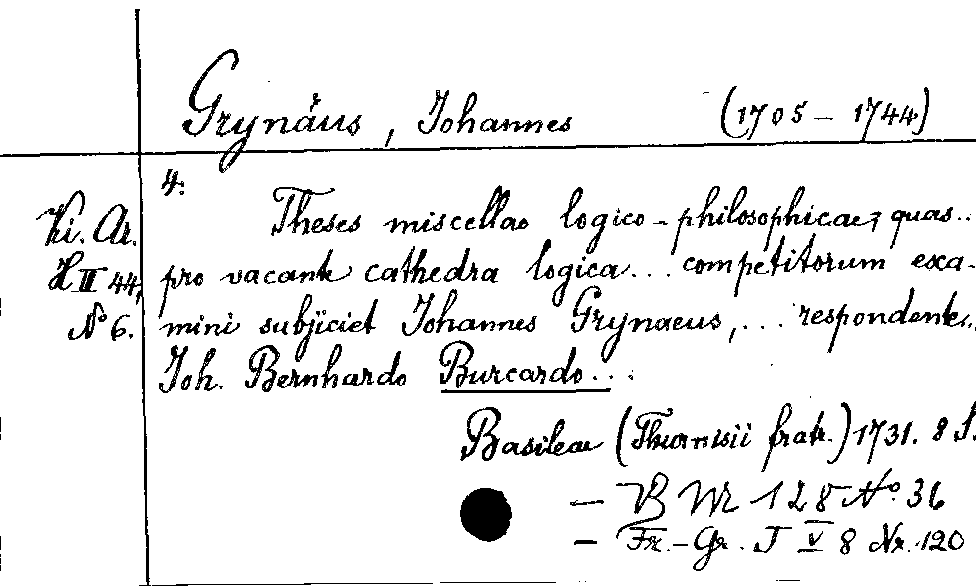 Grynäus, Johannes (1705 – 1744)
4.
Theses miscellae logico-philosophicae, quas..
Ki. Ar.
H III 44, pro vacante cathedra logica... competitorum exa-
No 6. mini subjiciet Johannes Grynaeus,... respondente...
Joh. Bernhardo Burcardo...
Basileae (Thurnisii fratr.) 1731. 8 S.
– 128 No. 36
– Fr.-Gr. J V 8 Nr. 120